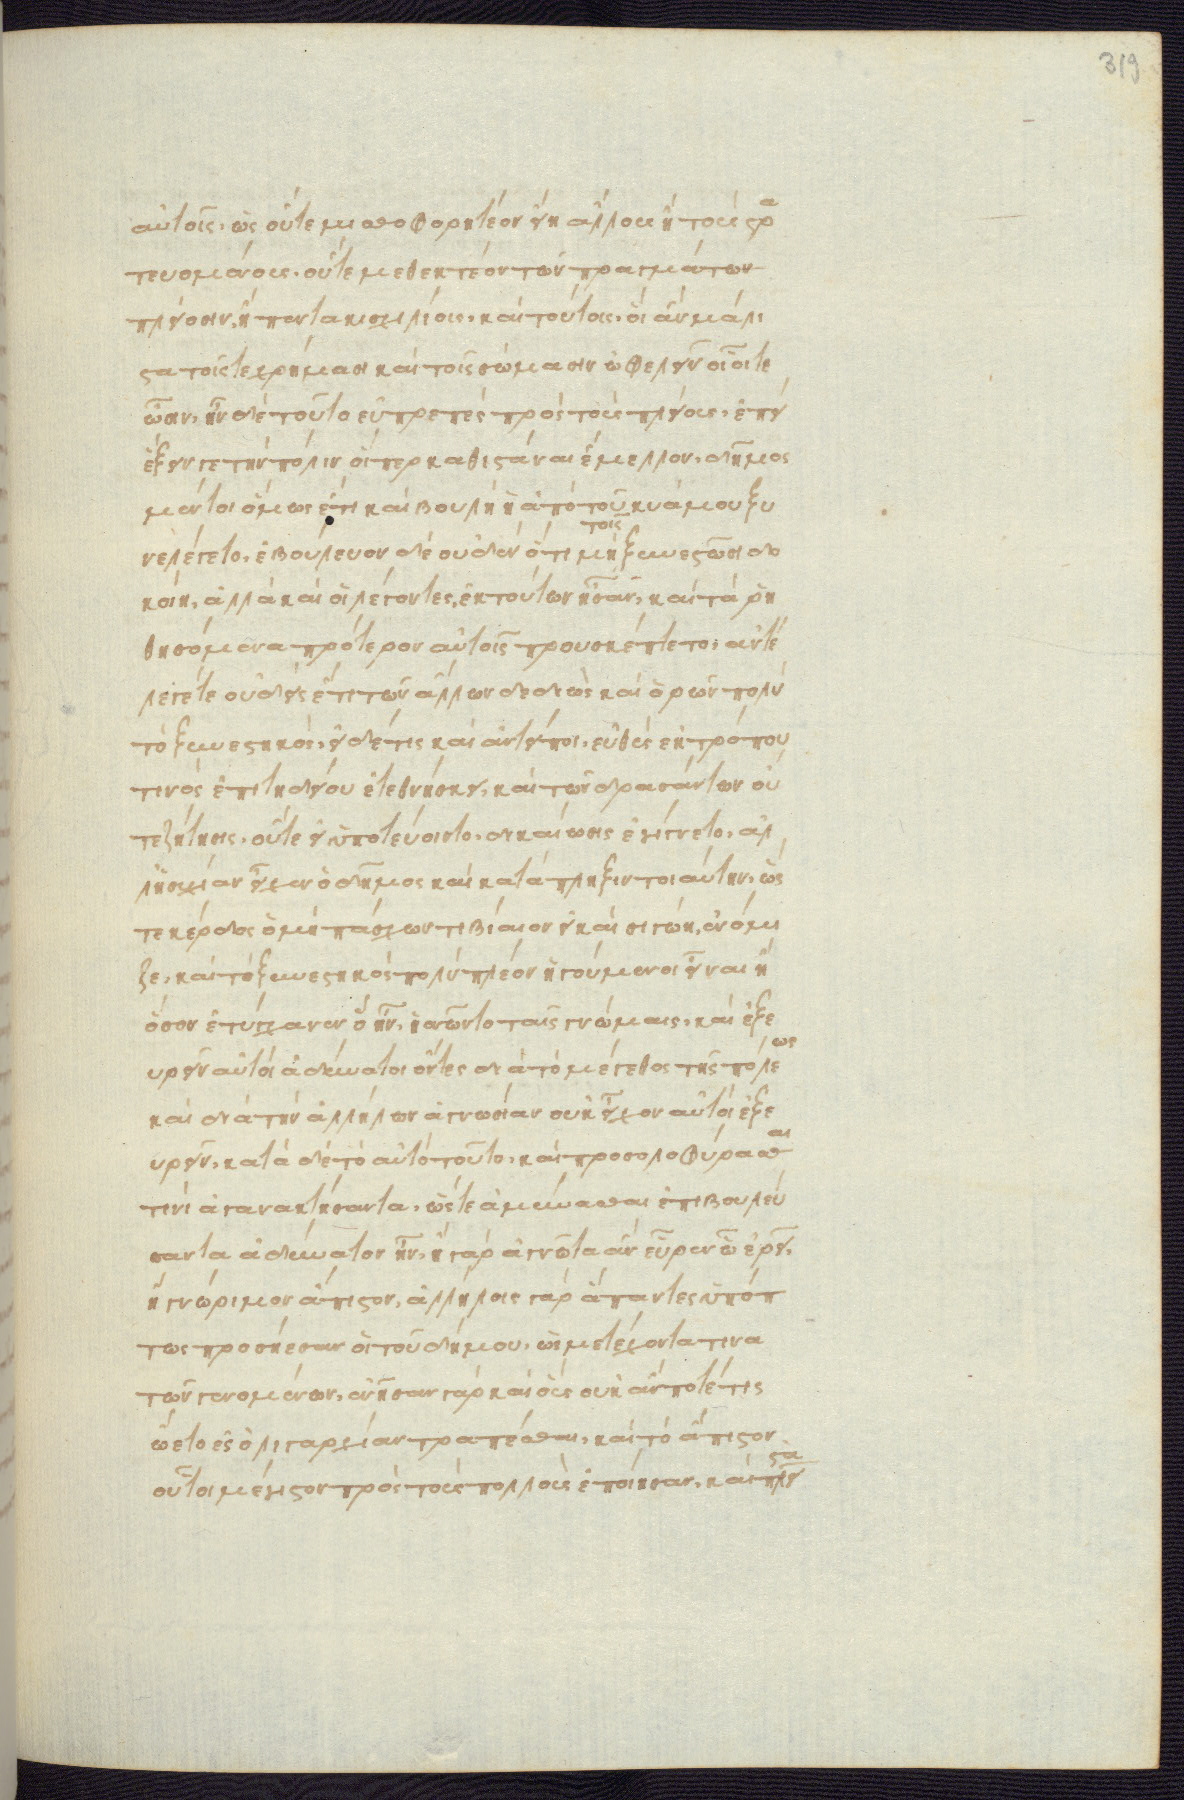 319
αὐτοῖς, ὡς οὔτε μισθοφορητέον εἴη ἄλλους ἢ τοὺς στρα
τευομένους, οὔτε μεθεκτέον τῶν πραγμάτων
πλείοσιν, ἢ πεντακισχιλίοις, καὶ τούτοις, οἳ ἂν μάλι
στα τοῖς τε χρήμασι καὶ τοῖς σώμασιν ὠφελεῖν οἷοί τε
ὦσιν, ἦν δὲ τοῦτο εὐπρεπὲς πρὸς τοὺς πλείους, ἐπεὶ
ἕξειν γε τὴν πόλιν οἵπερ καθιστάναι ἔμελλον, δῆμος
μέντοι ὅμως ἔτι καὶ βουλὴ ἡ ἀπὸ τοῦ κυάμου ξυ
νελέγετο, ἐβούλευον δὲ οὐδὲν ὅτι μὴ τοῖς ξυνεστῶσι δο
κοίη, ἀλλὰ καὶ οἱ λέγοντες, ἐκ τούτων ἦσαν, καὶ τὰ ῥη
θησόμενα πρότερον αὐτοῖς προυσκέπτετο, ἀντέ
λεγέ τε οὐδεὶς ἔτι τῶν ἄλλων δεδιὼς καὶ ὁρῶν πολὺ
τὸ ξυνεστηκός, εἰ δέ τις καὶ ἀντείποι, εὐθὺς ἐκ τρόπου
τινὸς ἐπιτηδείου ἐτεθνήκει, καὶ τῶν δρασάντων οὔ
τε ζήτησις, οὔτε εἰ ὑποπτεύοιντο, δικαίωσις ἐγίγνετο, ἀλ
λ' ἡσυχίαν εἶχεν ὁ δῆμος καὶ κατάπληξιν τοιαύτην, ὥς
τε κέρδος ὁ μὴ πάσχων τι βίαιον εἰ καὶ σιγῴη, ἐνόμι
ζε, καὶ τὸ ξυνεστηκὸς πολὺ πλέον ἡγούμενοι εἶναι ἢ
ὅσον ἐτύγχανεν ὂν ἦν, ἡσσῶντο ταῖς γνώμαις, καὶ ἐξε
υρεῖν αὐτοὶ ἀδύνατοι ὄντες διὰ τὸ μέγεθος τῆς πόλεως
καὶ διὰ τὴν ἀλλήλων ἀγνωσίαν οὐκ εἶχον αὐτοὶ ἐξε
υρεῖν, κατὰ δὲ τὸ αὐτὸ τοῦτο, καὶ προσολοφύρασθαι
τινὶ ἀγανακτήσαντα, ὥστε ἀμύνασθαι ἐπιβουλεύ
σαντα ἀδύνατον ἦν, ἢ γὰρ ἀγνῶτα ἂν εὗρεν ᾧ ἐρεῖ,
ἢ γνώριμον ἄπιστον, ἀλλήλοις γὰρ ἅπαντες ὑπόπ
τως προσῄεσαν οἱ τοῦ δήμου, ὡς μετέχοντά τινα
τῶν γενομένων, ἐνῆσαν γὰρ καὶ οὓς οὐκ ἄν ποτέ τις
ᾤετο ἐς ὀλιγαρχίαν τραπέσθαι, καὶ τὸ ἄπιστον
οὗτοι μέγιστον πρὸς τοὺς πολλοὺς ἐποίησαν, καὶ πλεῖστα